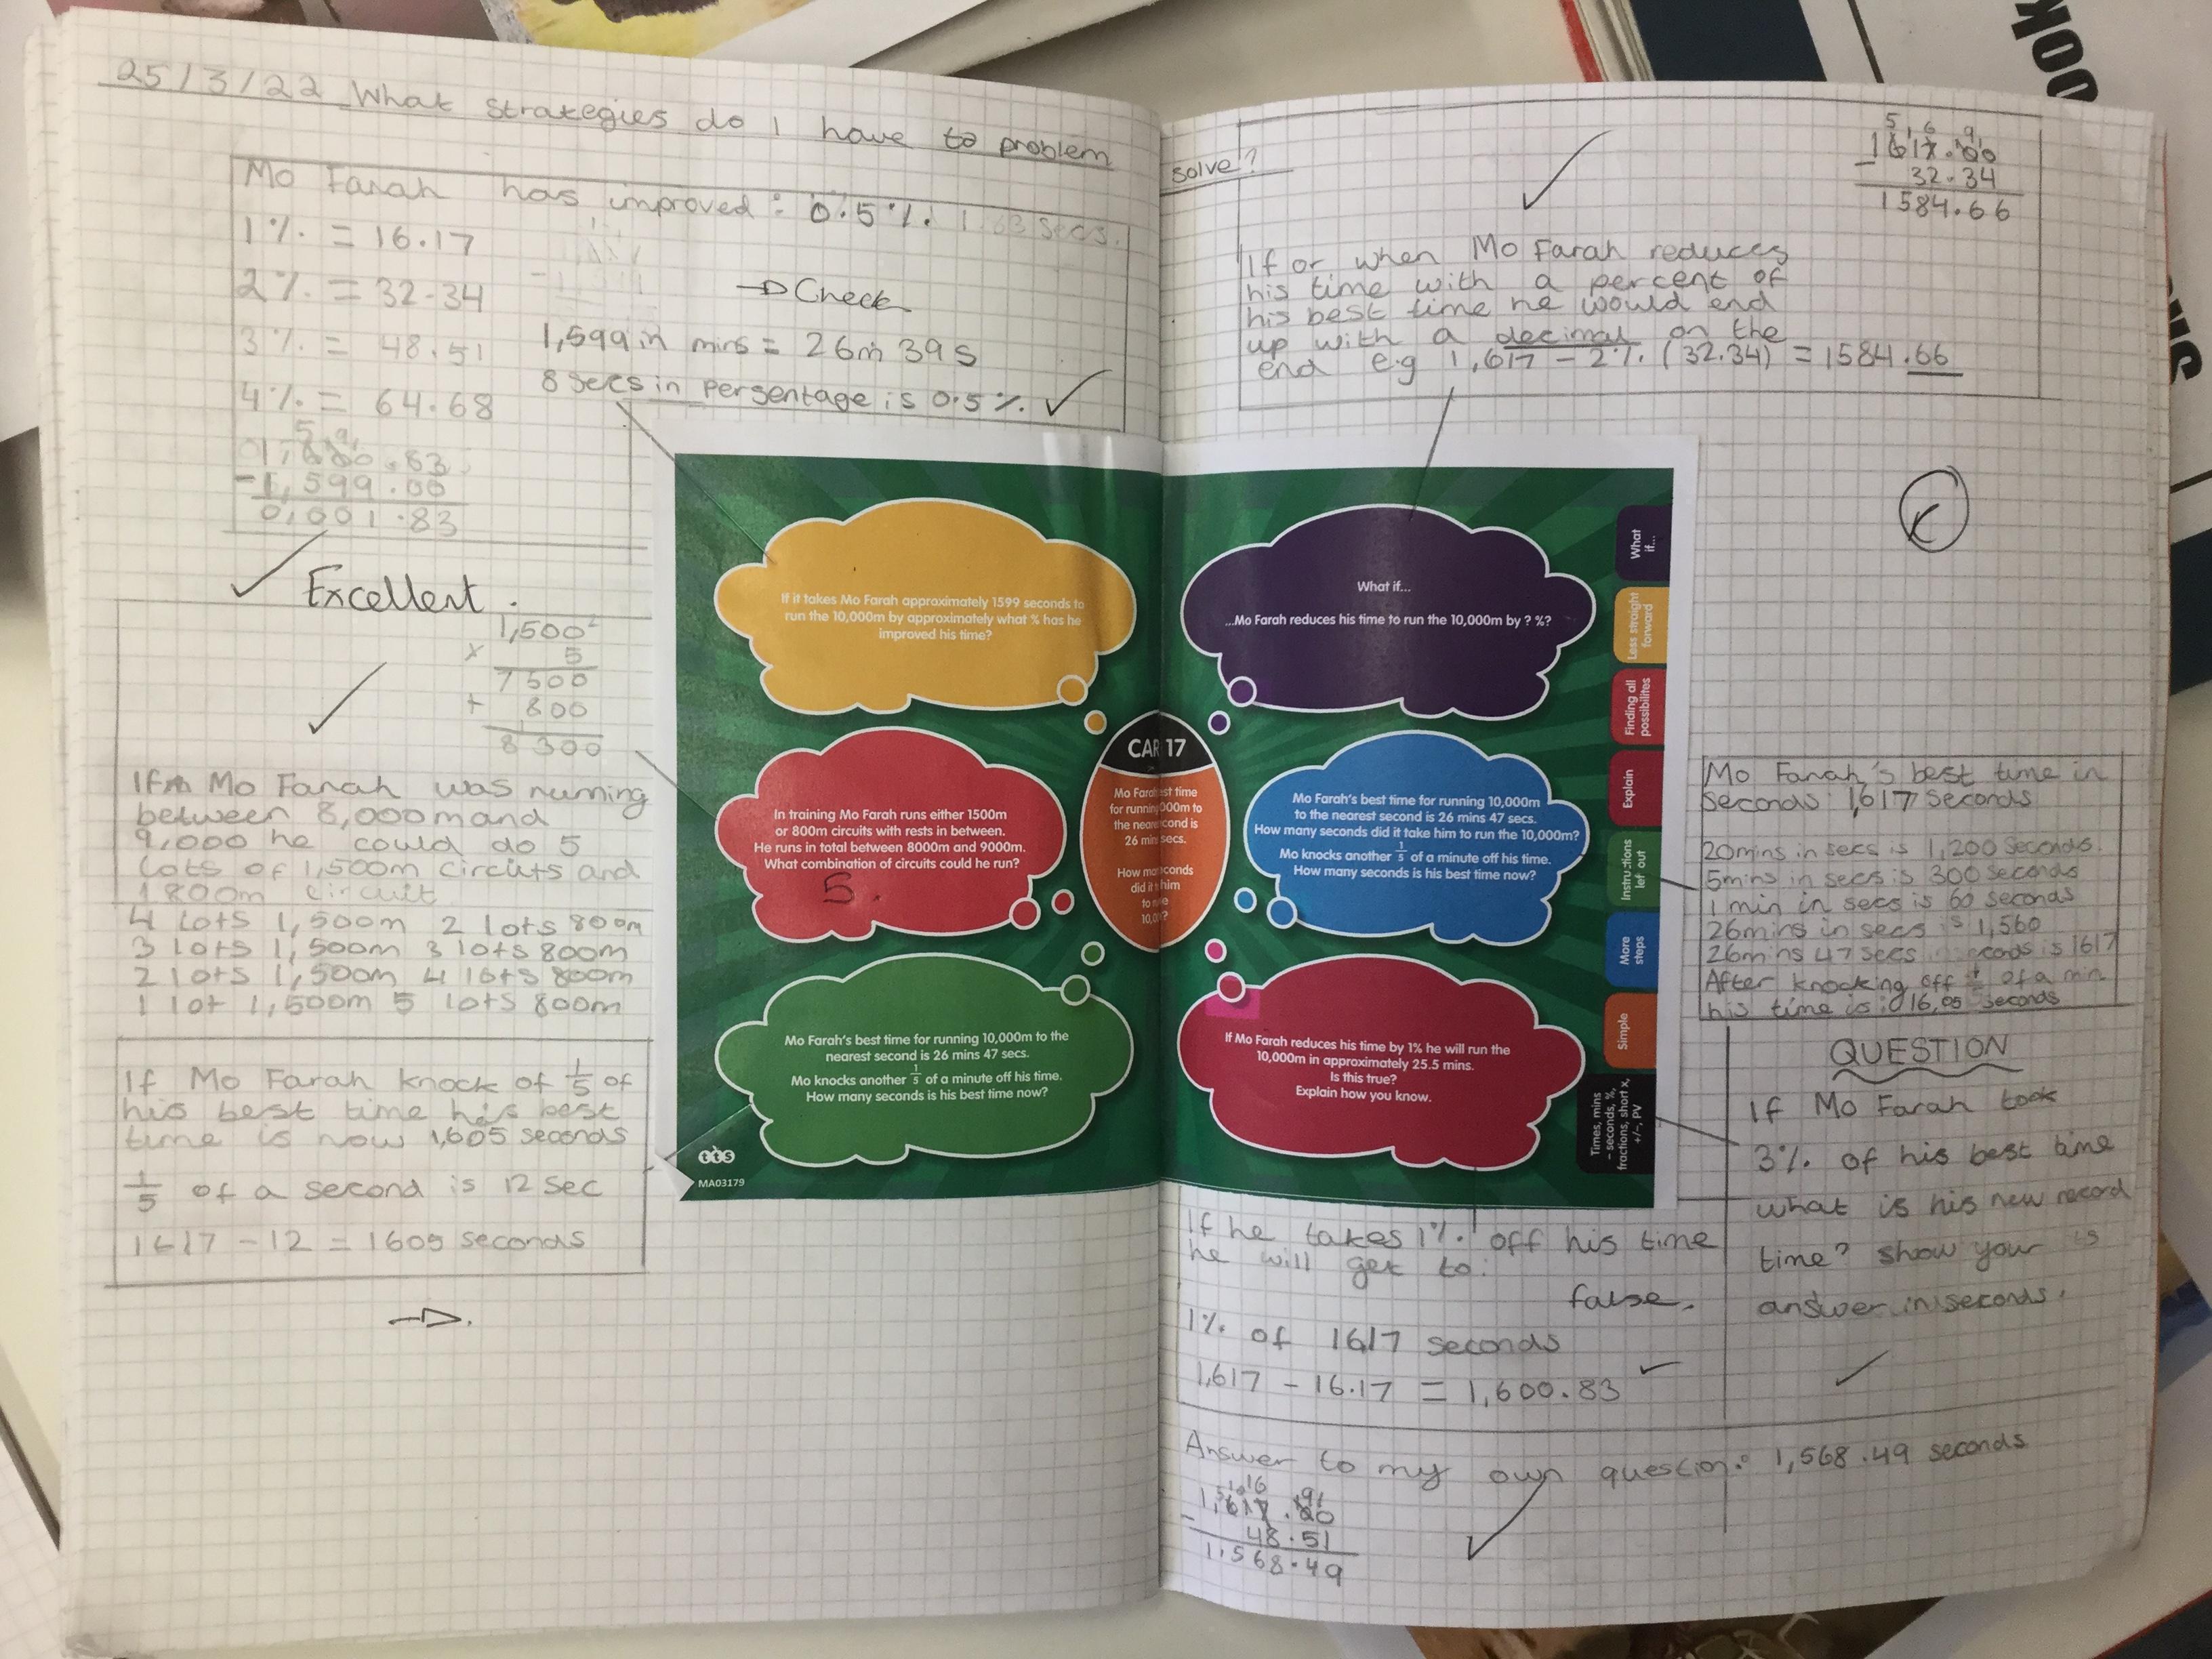 25/3/22 What strategies do I have to problem
solve?
Mo Farah has improved: 0.5%. 1.83 secs.
1% = 16.17
2% = 32.34
3% = 48.51
4% = 64.68
→ Check
1,599 in mins = 26m 39s
8 secs in persentage is 0.5%. ✓
01,600.83
- 1,599.00
0,001.83
Excellent.
1,500
x 5
7500
+ 800
8300
If Mo Farah was running
between 8,000m and
9,000 he could do 5
lots of 1,500m circuits and
1 800m circuit
4 lots 1,500m 2 lots 800m
3 lots 1,500m 3 lots 800m
2 lots 1,500m 4 lots 800m
1 lot 1,500m 5 lots 800m
If Mo Farah knock of 1/5 of
his best time his best
time is now 1,605 seconds
1/5 of a second is 12 sec
1617 - 12 = 1605 seconds
1617.00
- 32.34
1584.66
If or when Mo Farah reduces
his time with a percent of
his best time he would end
up with a decimal on the
end e.g 1,617 - 2% (32.34) = 1584.66
If it takes Mo Farah approximately 1599 seconds to
run the 10,000m by approximately what % has he
improved his time?
What if...
...Mo Farah reduces his time to run the 10,000m by ? %?
In training Mo Farah runs either 1500m
or 800m circuits with rests in between.
He runs in total between 8000m and 9000m.
What combination of circuits could he run?
5.
CAR 17
Mo Farah est time
for running 000m to
the neare cond is
26 min secs.
How man conds
did it him
to
10,0 ?
Mo Farah's best time for running 10,000m
to the nearest second is 26 mins 47 secs.
How many seconds did it take him to run the 10,000m?
Mo knocks another 1/5 of a minute off his time.
How many seconds is his best time now?
Mo Farah's best time for running 10,000m to the
nearest second is 26 mins 47 secs.
Mo knocks another 1/5 of a minute off his time.
How many seconds is his best time now?
If Mo Farah reduces his time by 1% he will run the
10,000m in approximately 25.5 mins.
Is this true?
Explain how you know.
tts
MA03179
What
if...
Less straight
forward
Finding all
possibilites
Explain
Instructions
lef out
More
steps
Simple
Times, mins
- seconds, %,
fractions, short x,
+/-, PV
Mo Farah's best time in
seconds: 1,617 seconds
20mins in secs is 1,200 seconds.
5mins in secs is 300 seconds
1 min in secs is 60 seconds
26mins in secs is 1,560
26mins 47 secs is 1617
After knocking off of a min
his time is: 16,05 seconds
QUESTION
If Mo Farah took
3% of his best time
what is his new record
time? show your
answer in seconds.
If he takes 1% off his time
he will get to:
false.
1% of 1617 seconds
1,617 - 16.17 = 1,600.83
Answer to my own question: 1,568.49 seconds
1,617.00
- 48.51
1,568.49
OOK